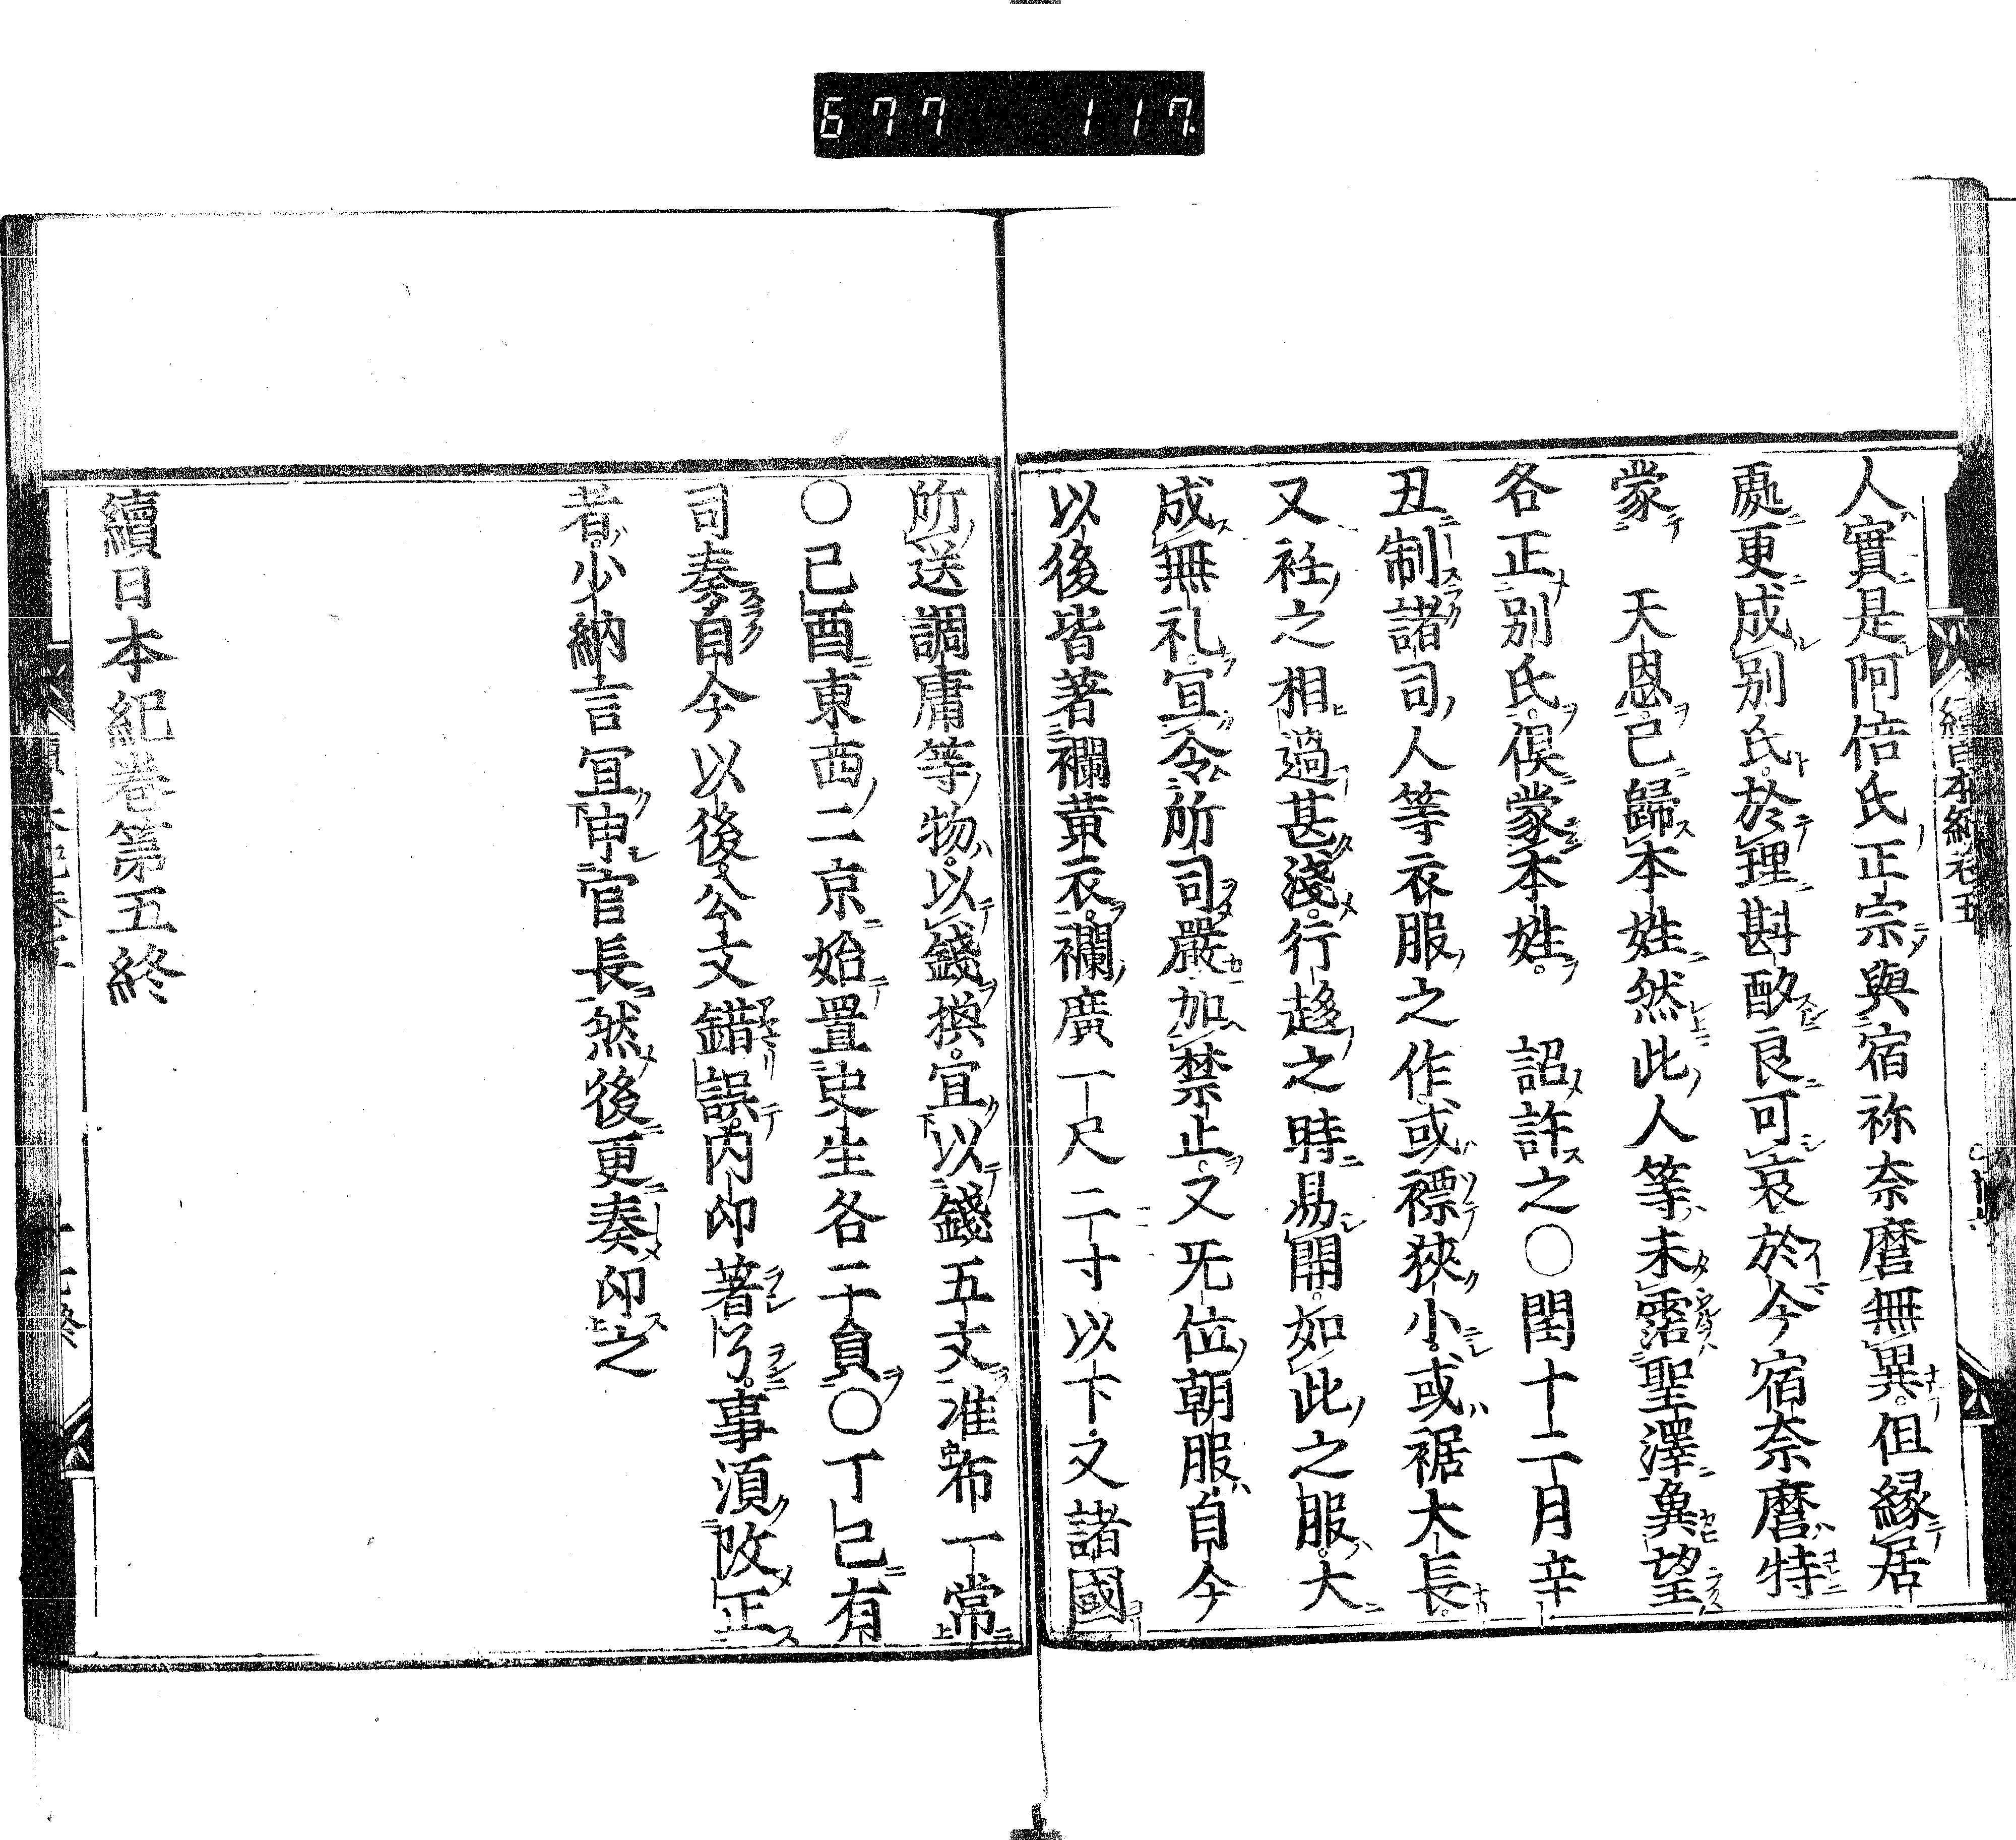 677 117.
人實是阿倍氏正宗與宿祢奈麿無異但縁居
處更成別氏於理斟酌良可哀於今宿奈麿特
蒙 天恩已歸本姓然此人等未露聖澤冀望
各正別氏俱蒙本姓 詔許之○閏十二月辛
丑制諸司人等衣服之作或褾狹小或裾大長
又衽之相過甚淺行趍之時易開如此之服大
成無礼宜令所司嚴加禁止又无位朝服自今
以後皆著襴黃衣襴廣一尺二寸以下又諸國
所送調庸等物以錢換宜以錢五文准布一常
○己酉東西二京始置史生各二員○丁巳有
司奏自今以後公文錯誤内印著了事須改正
者少納言宜申官長然後更奏印之
續日本紀卷第五終